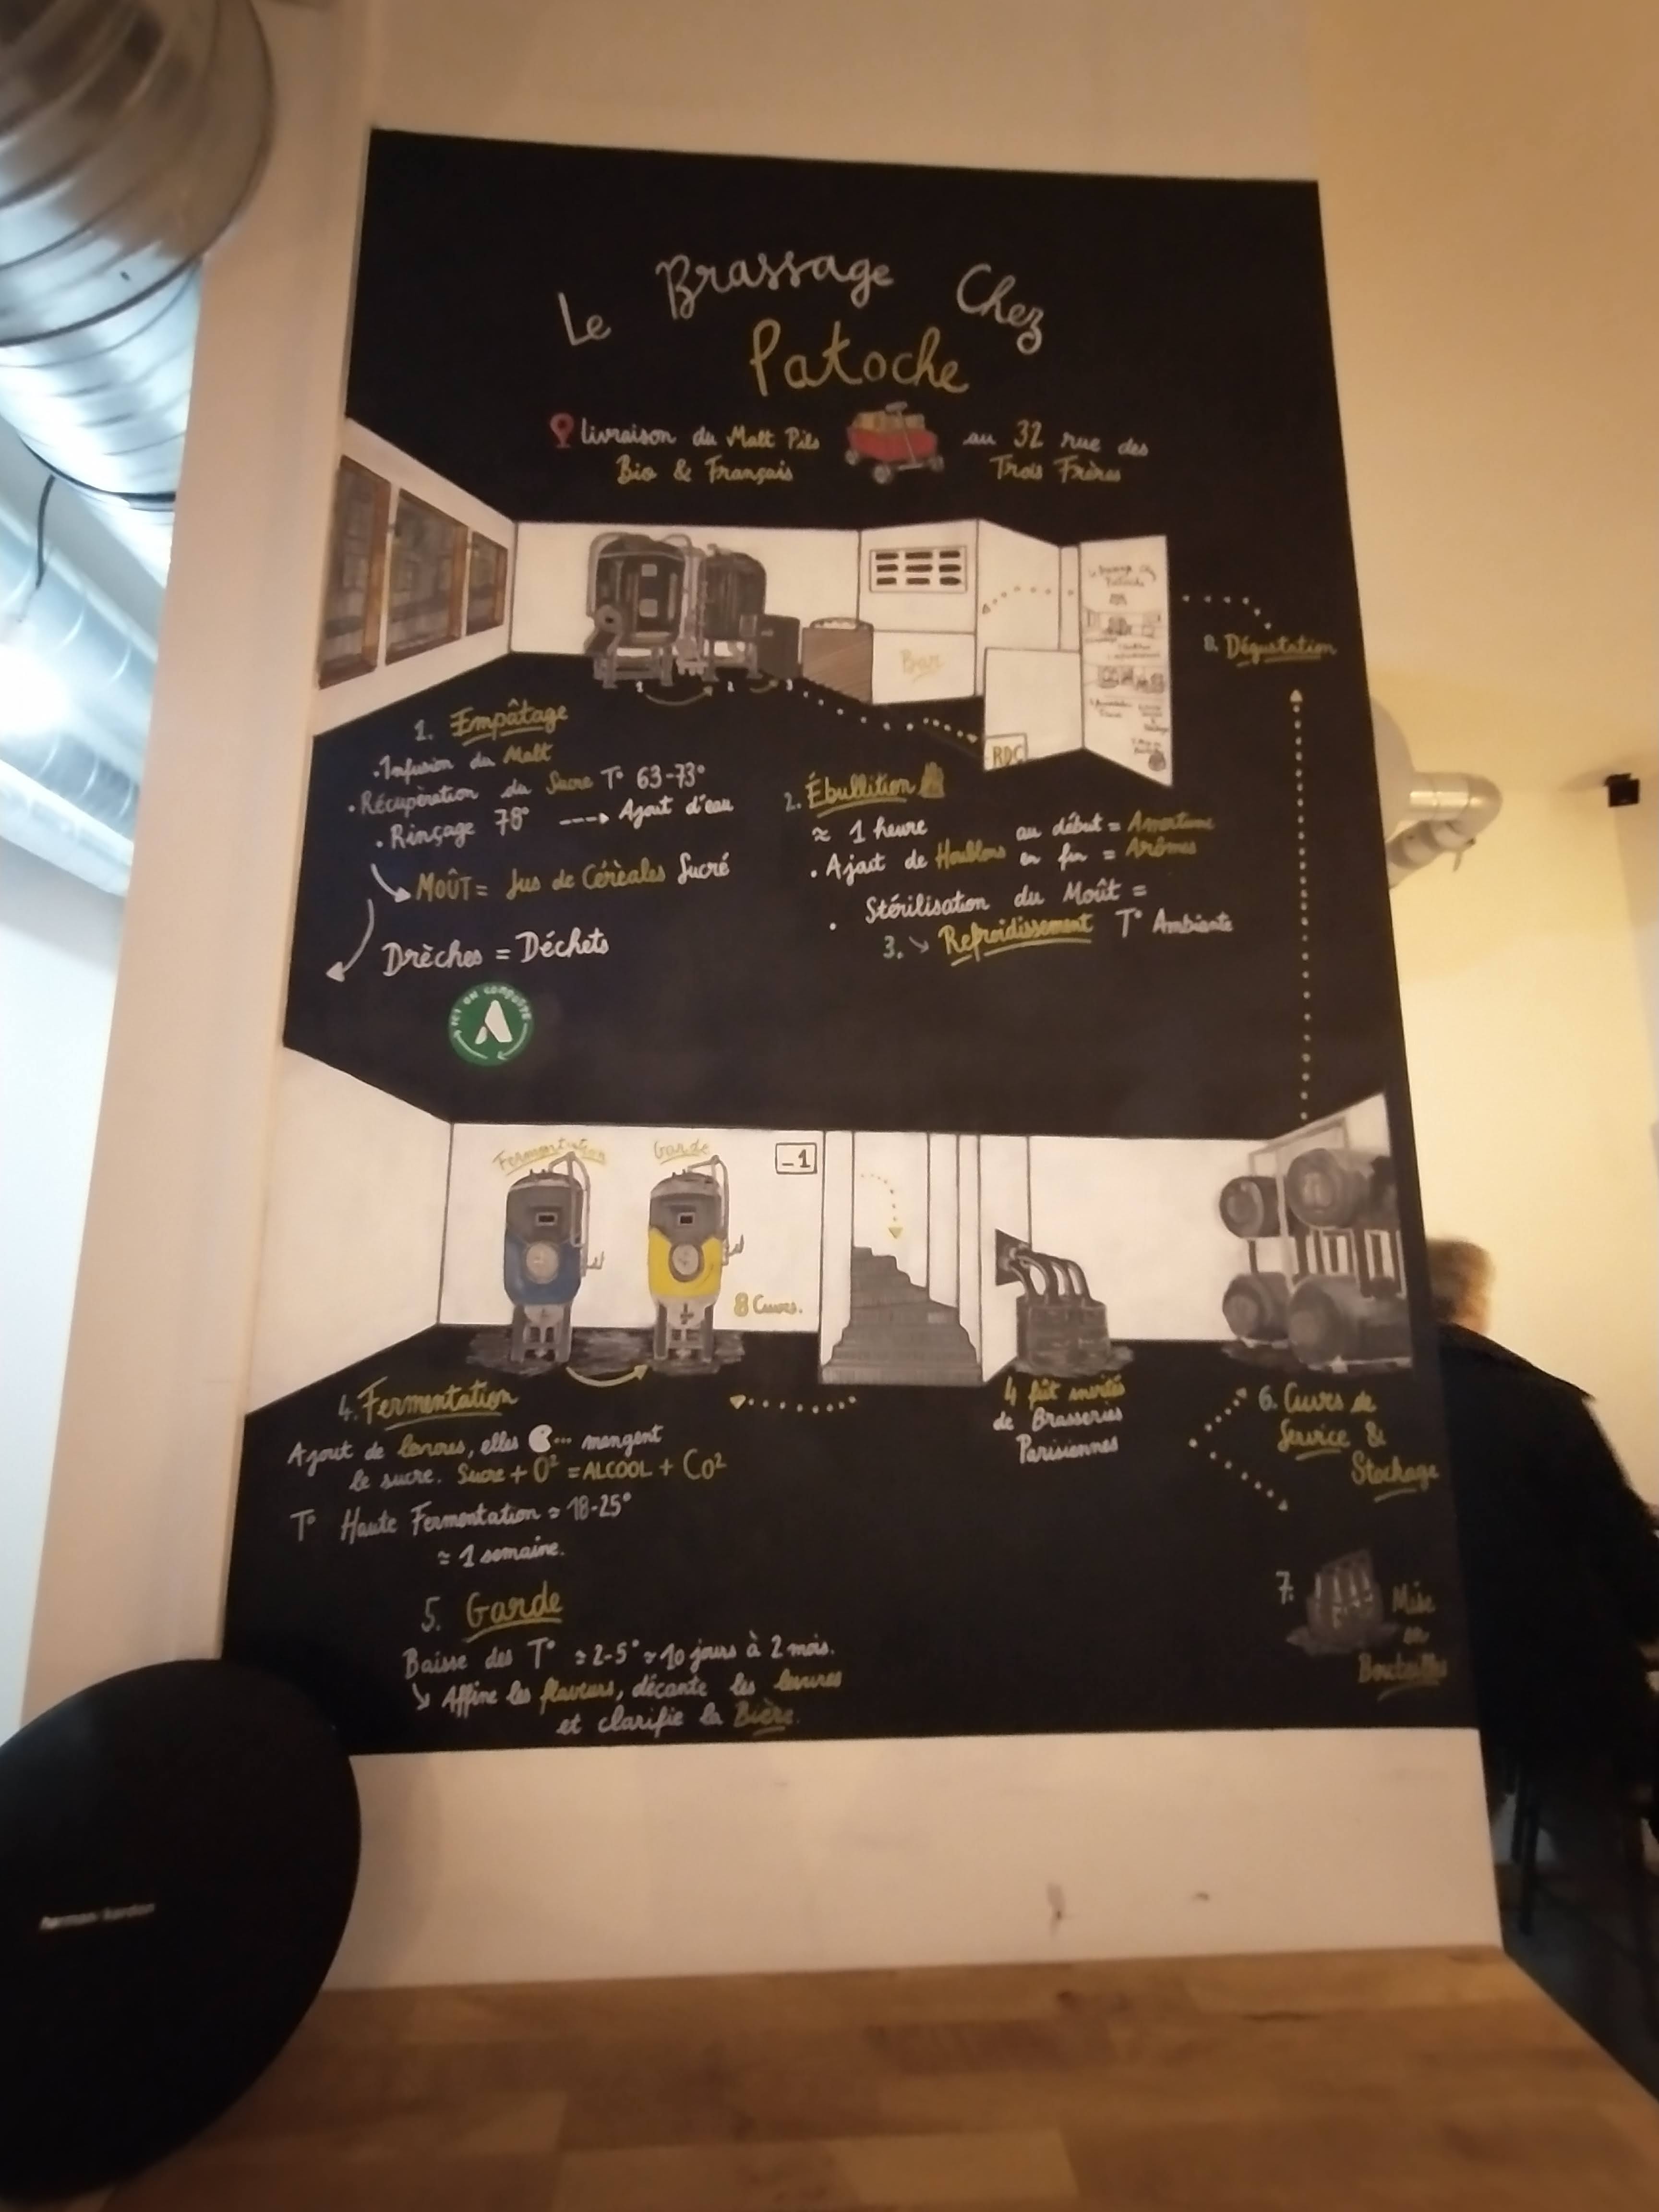 Le Brassage Chez
Patoche
livraison du Malt Pils
Bio & Français
au 32 rue des
Trois Frères
Bar
RDC
1 2 3
8. Dégustation
1. Empâtage
• Infusion du Malt
• Récupération du Sucre T° 63-73°
• Rinçage 78° ---> Ajout d'eau
MOÛT = Jus de Céréales Sucré
Drèches = Déchets
ICI ON COMPOSTE
2. Ébullition
≈ 1 heure
• Ajout de Houblons au début = Amertume
en fin = Arômes
• Stérilisation du Moût =
3. ↘ Refroidissement T° Ambiante
Fermentation
Garde
-1
8 Cuves.
4. Fermentation
Ajout de levures, elles ... mangent
le sucre. Sucre + O² = ALCOOL + Co²
T° Haute Fermentation ≈ 18-25°
≈ 1 semaine.
5. Garde
Baisse des T° ≈ 2-5° ≈ 10 jours à 2 mois.
↘ Affine les flaveurs, décante les levures
et clarifie la Bière.
4 fût invités
de Brasseries
Parisiennes
6. Cuves de
Service &
Stockage
7. Mise
en
Bouteilles
harman/kardon